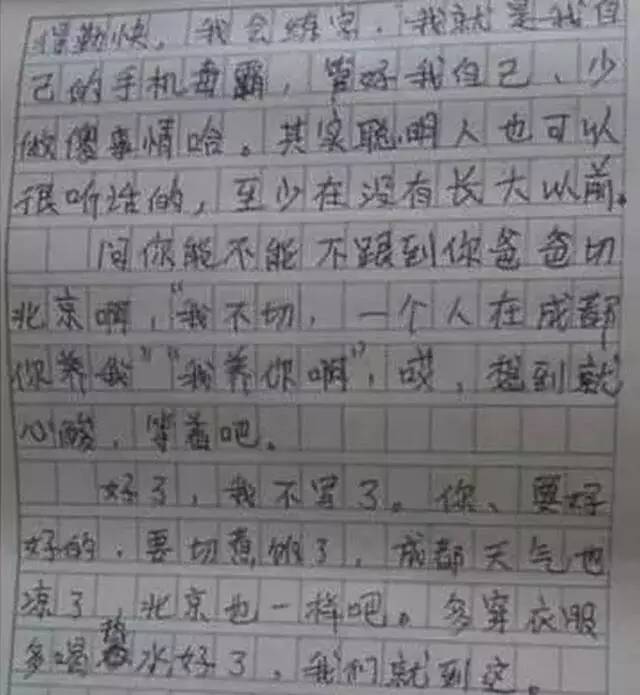 很勤快，我会练字，我就是我自
己的手机毒霸，管好我自己、少
做傻事情哈。其实聪明人也可以
很听话的，至少在没有长大以前。
问你能不能不跟到你爸爸切
北京啊，“我不切，一个人在成都
你养我”“我养你啊”，哎，想到就
心酸，等着吧。
好了，我不写了。你、要好
好的，要切 了，成都天气也
凉了，北京也一样吧。多穿衣服
多喝热水好了，我们就到这。